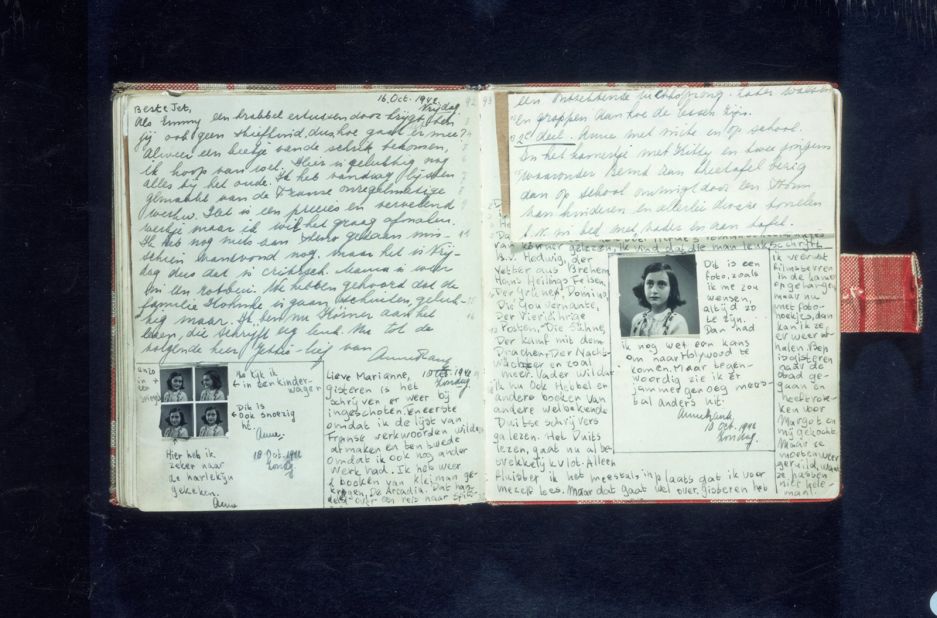 16 Oct. 1942
Vrijdag.
Beste Jet,
Als Emmy een krabbel ertussendoor krijgt, ben
jij ook geen stiefkind, dus hoe gaat er mee?
Alweer een beetje van de schrik bekomen,
ik hoop van wel. Hier is gelukkig nog
alles bij het oude. Ik heb vandaag lijsten
gemaakt van de Franse onregelmatige
werkw. Het is een precies en vervelend
werkje maar ik wil het graag afmaken.
Ik heb nog niets aan Steno gedaan mis-
schien vanavond nog, maar het is Vrij-
dag dus dat is critisch. Mama is weer
in een rotbui. We hebben gehoord dat de
familie is gaan schuilen, geluk-
kig maar. Ik ben nu Körner aan het
lezen, die schrijft erg leuk. Nu tot de
volgende keer Jettie-lief van
Anne Frank
Ho kijk ik
in de kinder-
wagen
Dit is
ook snoezig
hé.
Anne.
Hier heb ik
zeker naar
de harlekijn
gekeken.
Anne
18 Oct. 1942
Zondag
Lieve Marianne, 18 Oct. 1942
Zondag
gisteren is het
schrijven er weer bij
ingeschoten. Ten eerste
omdat ik de lijst van
Franse werkwoorden wilde
afmaken en ten tweede
omdat ik ook nog ander
werk had. Ik heb weer
2 boeken van Kleiman ge-
kregen, De Arcadia, Dat han-
delt over een reis naar Spits-
en grappen aan hoe de lessen zijn.
2e deel. Anne met niche en op school.
In het kamertje met Kitty en twee jongens
waaronder Bernd aan theetafel bezig
dan op school omringd door een stoom
van kinderen en allerlei dwaze tonelen
b.v. in bed met vader en aan tafel.
B.v. Hedwig, der
Vetter aus Bremen,
Hans Heilings Felsen,
Der Grüne Domino,
Die Gouvernante,
Der Vierjährige
Posten, Die Sühne,
Der Kampf mit dem
Drachen, Der Nacht-
wächter en zoal
meer. Vader wil dat
ik nu ook Hebbel en
andere boeken van
andere welbekende
Duitse schrijvers
ga lezen. Het Duits
lezen, gaat nu al be-
trekkelijk vlot. Alleen
fluister ik het meestal, in plaats dat ik voor
mezelf lees. Maar dat gaat wel over. gisteren heb
Dit is een
foto, zoals
ik me zou
wensen,
altijd zo
te zijn.
Dan had
ik nog wel een kans
om naar Holywood te
komen. Maar tegen-
woordig zie ik er
jammer genoeg mees-
tal anders uit.
Anne Frank.
18 Oct. 1942
Zondag.
ik weer wat
filmsterren
in de kamer
opgehangen
maar nu
met foto-
hoekjes, dan
kan ik ze
er weer af
halen. Ben
is gisteren
naar de
stad ge-
gaan en
heeft rok-
ken voor
Margot en
mij gekocht.
Maar ze
moeten weer
geruild, want
ze passen
niet hele-
maal.